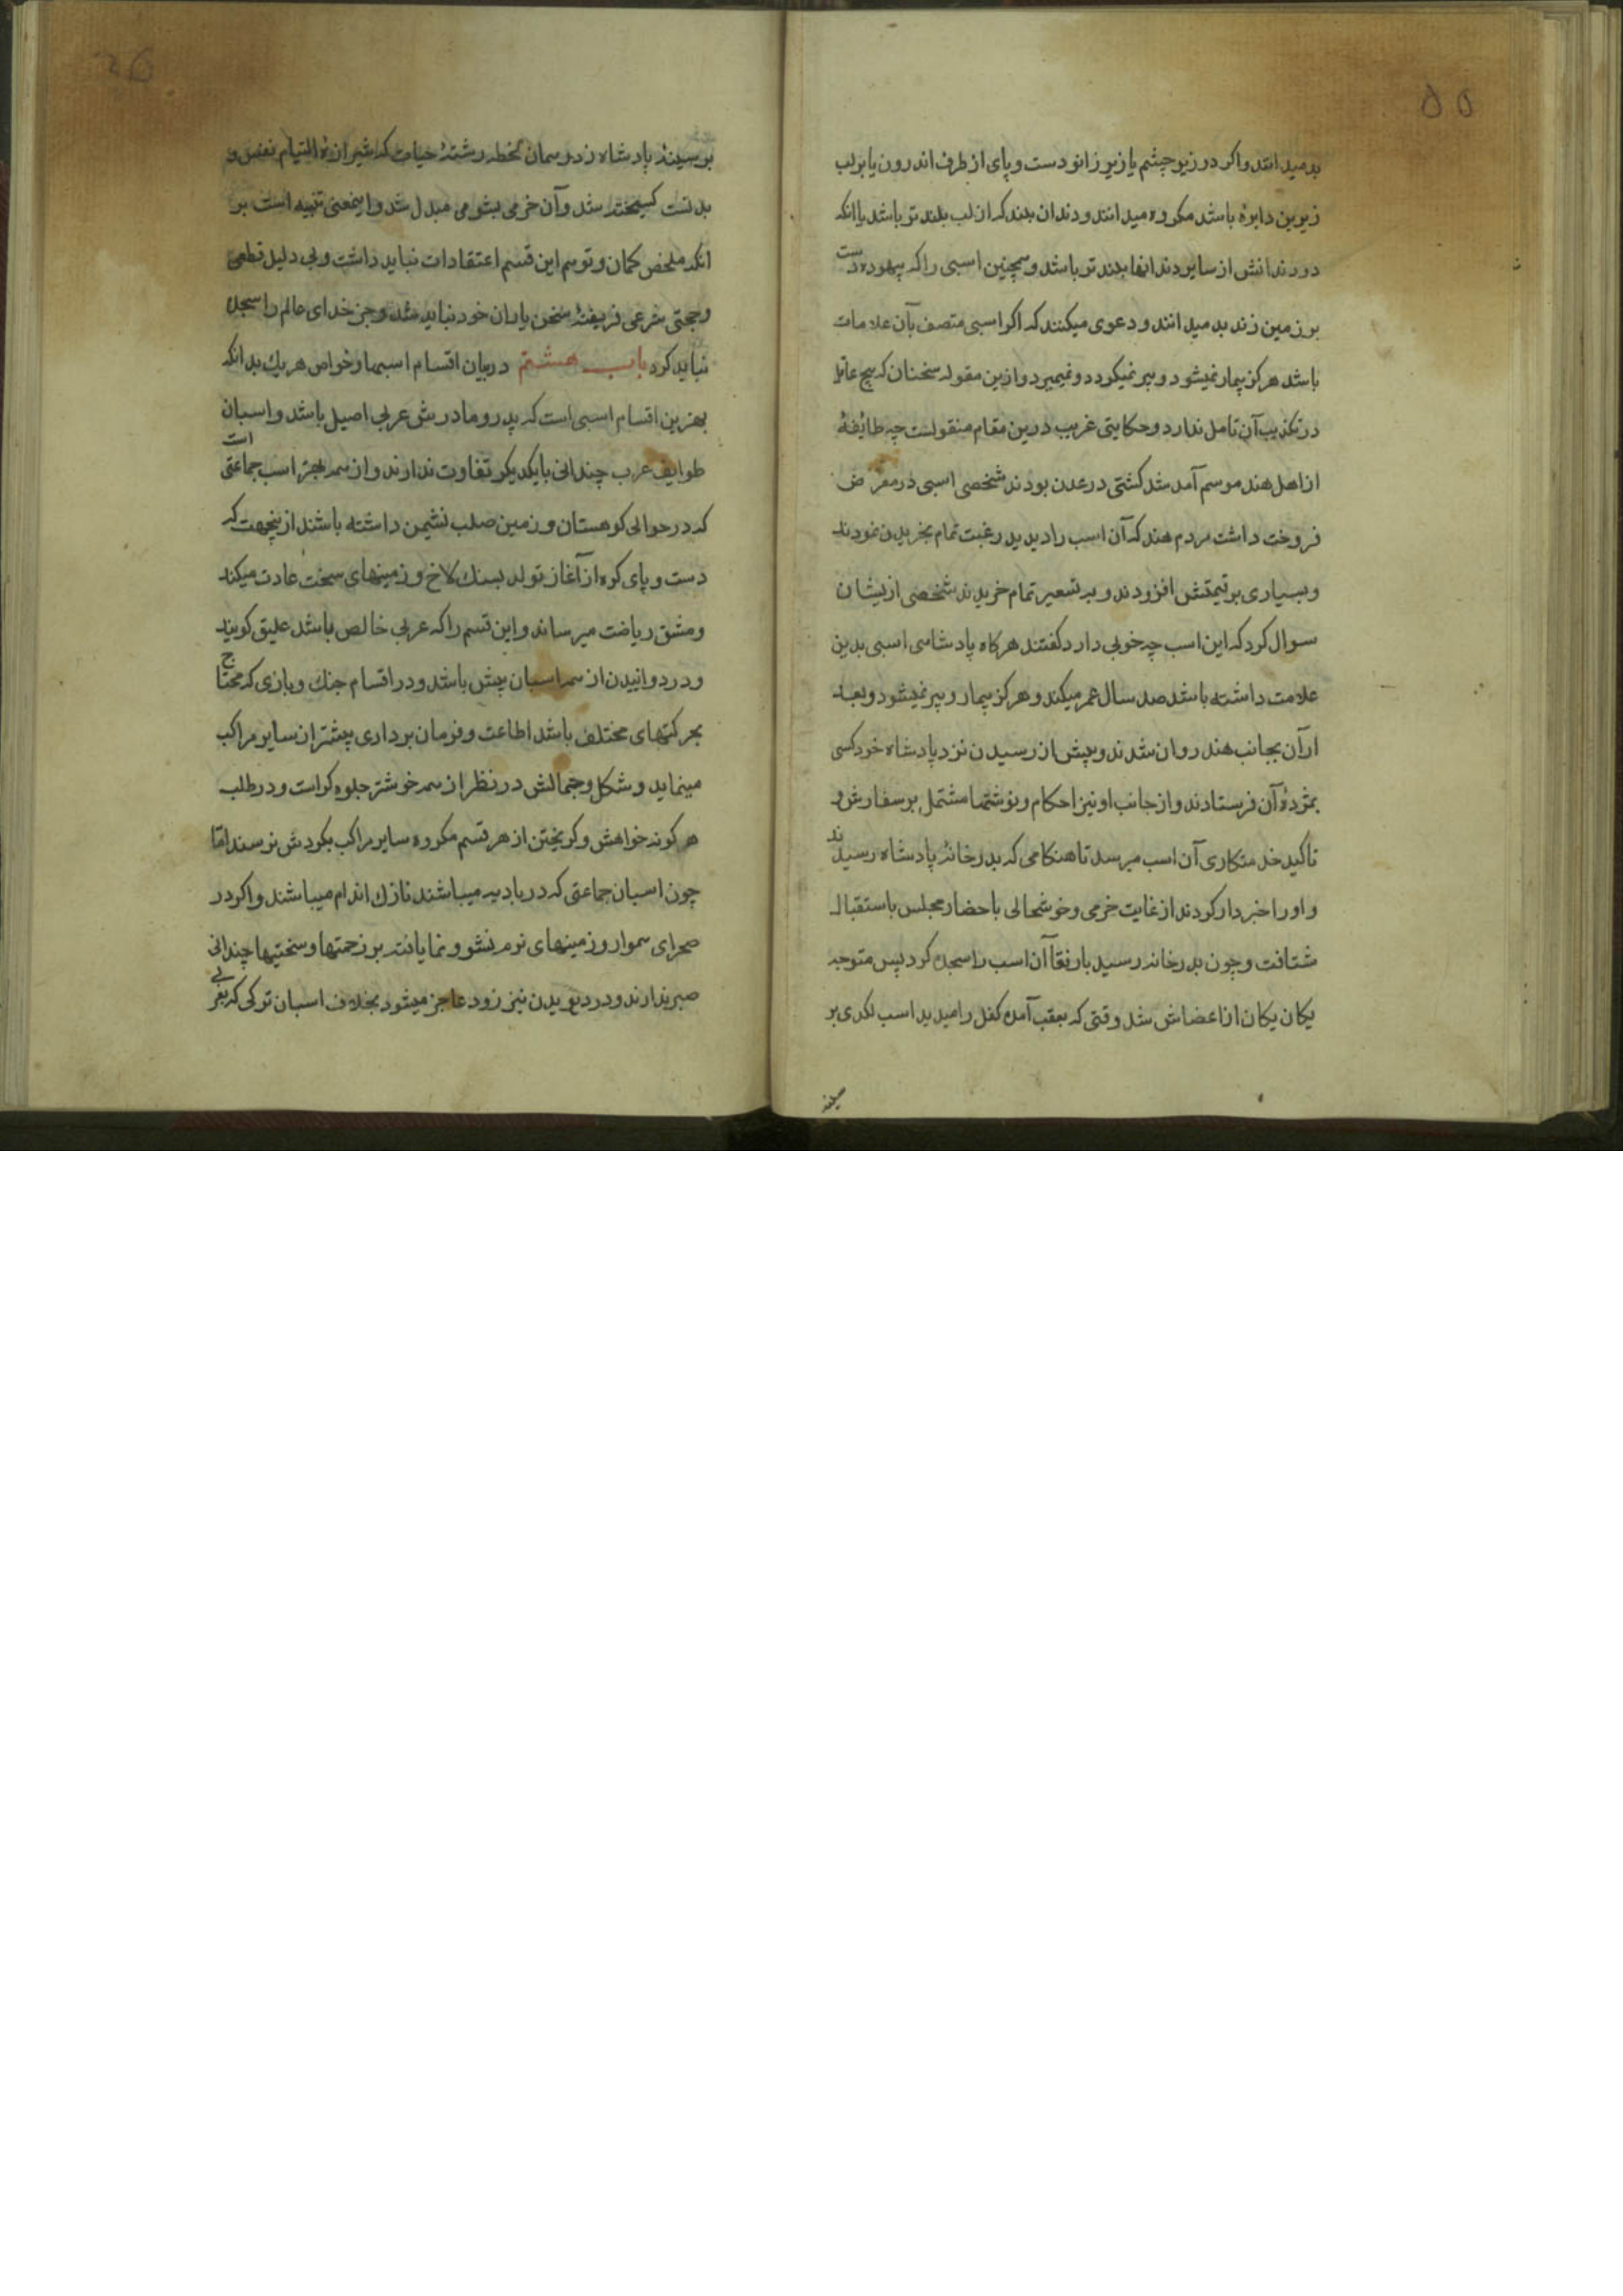 ۵۵
بدمیدانند واکر در زیر چشم یا زیر زانو دست و پای از طرف اندرون یا بر لب
زیرین دایرهٔ باشد مکروه میدانند و دندان بلند که از لب بلند تر باشد یا انکه
دو دندانش از سایر دندانها بلند تر باشد و همچنین اسبی را که بیهوده دست
بر زمین زند بد میدانند و دعوی میکنند که اکر اسبی متصف بآن علامات
باشد هرکز بیمار نمیشود و پیر نمیکردد و نمیمیرد و ازین مقوله سخنان که هیچ عاقل
در تکذیب آن تامل ندارد و حکایتی غریب درین مقام منقولست چه طائفهٔ
از اهل هند موسم آمد شد کشتی در عدن بودند شخصی اسبی در معرض
فروخت داشت مردم هند که آن اسب را دیدید رغبت تمام بخریدن نمودند
و بسیاری بر قیمتش افزودند و به تسعیر تمام خریدند شخصی ازیشان
سوال کرد که این اسب چه خوبی دارد کفتند هرکاه پادشاهی اسبی بدین
علامت داشته باشد صد سال عمر میکند و هرکز بیمار و پیر نمیشود و بعد
ازآن بجانب هند روان شدند و پیش از رسیدن نزد پادشاه خود کسی
بمژدهٔ آن فرستادند و از جانب او نیز احکام و نوشتها مشتمل بر سفارش و
تاکید خدمتکاری آن اسب میرسد تا هنکامی که بدرخانهٔ پادشاه رسیدند
و او را خبردار کردند از غایت خرمی و خوشحالی با حضار مجلس باستقبال
شتافت و چون بدرخانه رسید با رفقا آن اسب را سجده کرد پس متوجه
یکان یکان از اعضاش شد وقتی که بعقب آمده کفل را میدید اسب لکدی بر
سینه
بر سینهٔ پادشاه زد ریسمان رشتهٔ حیات که شیرازهٔ التیام نفس و
بدنست کسیخته شد و آن خرمی بشومی مبدل شد و اینمعنی تنبیه است بر
انکه ملخص کمان و توهم این قسم اعتقادات نباید داشت و بی دلیل قطعی
و حجتی شرعی فریفتهٔ سخن یاران خود نباید شد و جز خدای عالم را سجده
نباید کرد باب هشتم در بیان اقسام اسبها و خواص هریک بدانکه
بهترین اقسام اسبی است که پدر و مادرش عربی اصیل باشد و اسبان
طوایف عرب چندانی بایکدیکر تفاوت ندارند و از همه بهتر اسب جماعتی است
که در حوالی کوهستان و زمین صلب نشیمن داشته باشند ازینجهت که
دست و پای کره از آغاز تولد بسنک لاخ و زمینهای سخت عادت میکند
و مشق ریاضت میرساند و این قسم را که عربی خالص باشد عتیق کویند
و در دوانیدن از همه اسبان پیش باشد و در اقسام جنک و بازی که محتاج
بحرکتهای مختلف باشد اطاعت و فرمان برداری بیشتر از سایر مراکب
مینماید و شکل و جمالش در نظر از همه خوشتر جلوه کراست و در طلب
هر کونه خواهش و کریختن از هر قسم مکروه سایر مراکب بکردش نرسند اما
چون اسبان جماعتی که در بادیه میباشند نازک اندام میباشند و اکر در
صحرای هموار و زمینهای نرم نشو و نما یافته بر زحمتها و سختیها چندانی
صبر ندارند و در دویدن نیز زود عاجز میشود بخلاف اسبان ترکی که بعربی